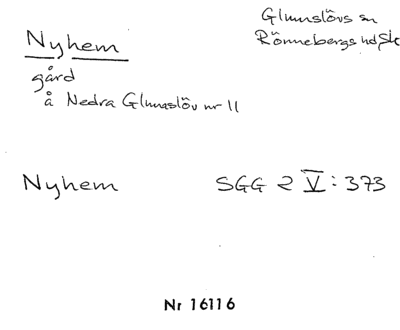 Nyhem
gård
å Nedra Glumslöv nr 11
Glumslövs sn
Rönnebergs hd, Sk
Nyhem SGG 2 V: 373
Nr 16116